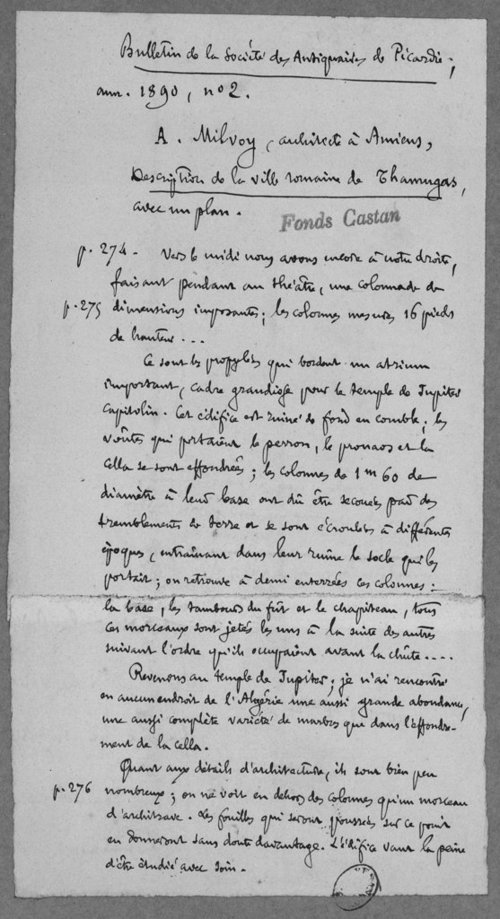 Bulletin de la Société des Antiquaires de Picardie;
ann. 1890, no 2.
A. Milvoy, architecte à Amiens,
Description de la ville romaine de Thamugas,
avec un plan.
Fonds Castan
p. 274 - Vers le midi nous avons encore à notre droite,
faisant pendant au théâtre, une colonnade de
p. 275 dimensions imposantes; les colonnes mesurent 16 pieds
de hauteur...
Ce sont les propylées qui bordent un atrium
important, cadre grandiose pour le temple de Jupiter
Capitolin. Cet édifice est ruiné de fond en comble; les
voûtes qui portaient le perron, le pronaos et la
cella se sont effondrées; les colonnes de 1m60 de
diamètre à leur base ont dû être secouées par des
tremblements de terre et se sont écroulées à différentes
époques, entraînant dans leur ruine le socle qui les
portait; on retrouve à demi enterrées ces colonnes:
la base, les tambours du fût et le chapiteau, tous
ces morceaux sont jetés les uns à la suite des autres
suivant l'ordre qu'ils occupaient avant la chûte....
Revenons au temple de Jupiter; je n'ai rencontré
en aucun endroit de l'Algérie une aussi grande abondance,
une aussi complète variété de marbres que dans l'effondre-
ment de la cella.
Quant aux détails d'architecture, ils sont bien peu
p. 276 nombreux; on ne voit en dehors des colonnes qu'un morceau
d'architrave. Les fouilles qui seront poussées sur ce point
en donneront sans doute davantage. L'édifice vaut la peine
d'être étudié avec soin.